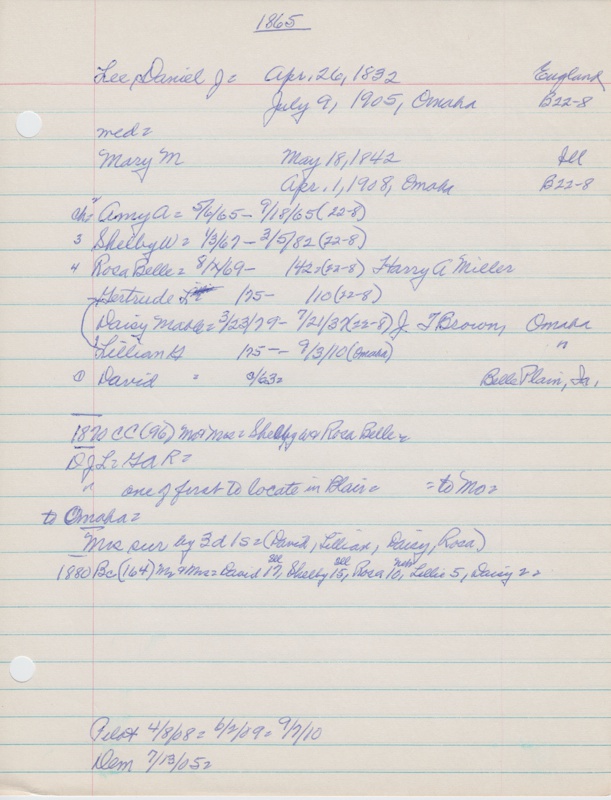 1865
Lee, Daniel J = Apr. 26, 1832 England
July 9, 1905, Omaha B22-8
med =
Mary M May 18, 1842 Ill
Apr. 1, 1908, Omaha B22-8
ch = Amy A = 5/6/65 - 9/18/65 (22-8)
3 Shelby W = 1/3/67 - 3/5/82 (22-8)
4 Rosa Belle = 8/ /69 - 142 = (22-8) Harry A Miller
Gertrude /75 - /10 (22-8)
Daisy Mable = 3/23/79 - 7/21/37 (22-8) J. T Brown, Omaha
Lillian G /75 - - 9/3/10 (Omaha) "
① David = /63 = Belle Plain, Ia,
1870 CC (96) Mr & Mrs = Shelby W & Rosa Belle =
D J L = G A R =
" one of first to locate in Blair = = to Mo =
to Omaha =
Mrs sur by 3d 1s = (David, Lillian, Daisy, Rosa)
1880 BC (164) Mr & Mrs = David 17, Ill Shelby 15, Ill Rosa 10, Neb Lillie 5, Daisy 2 =
Pilot 4/8/08 = 6/2/09 = 9/7/10
Dem 7/13/05 =